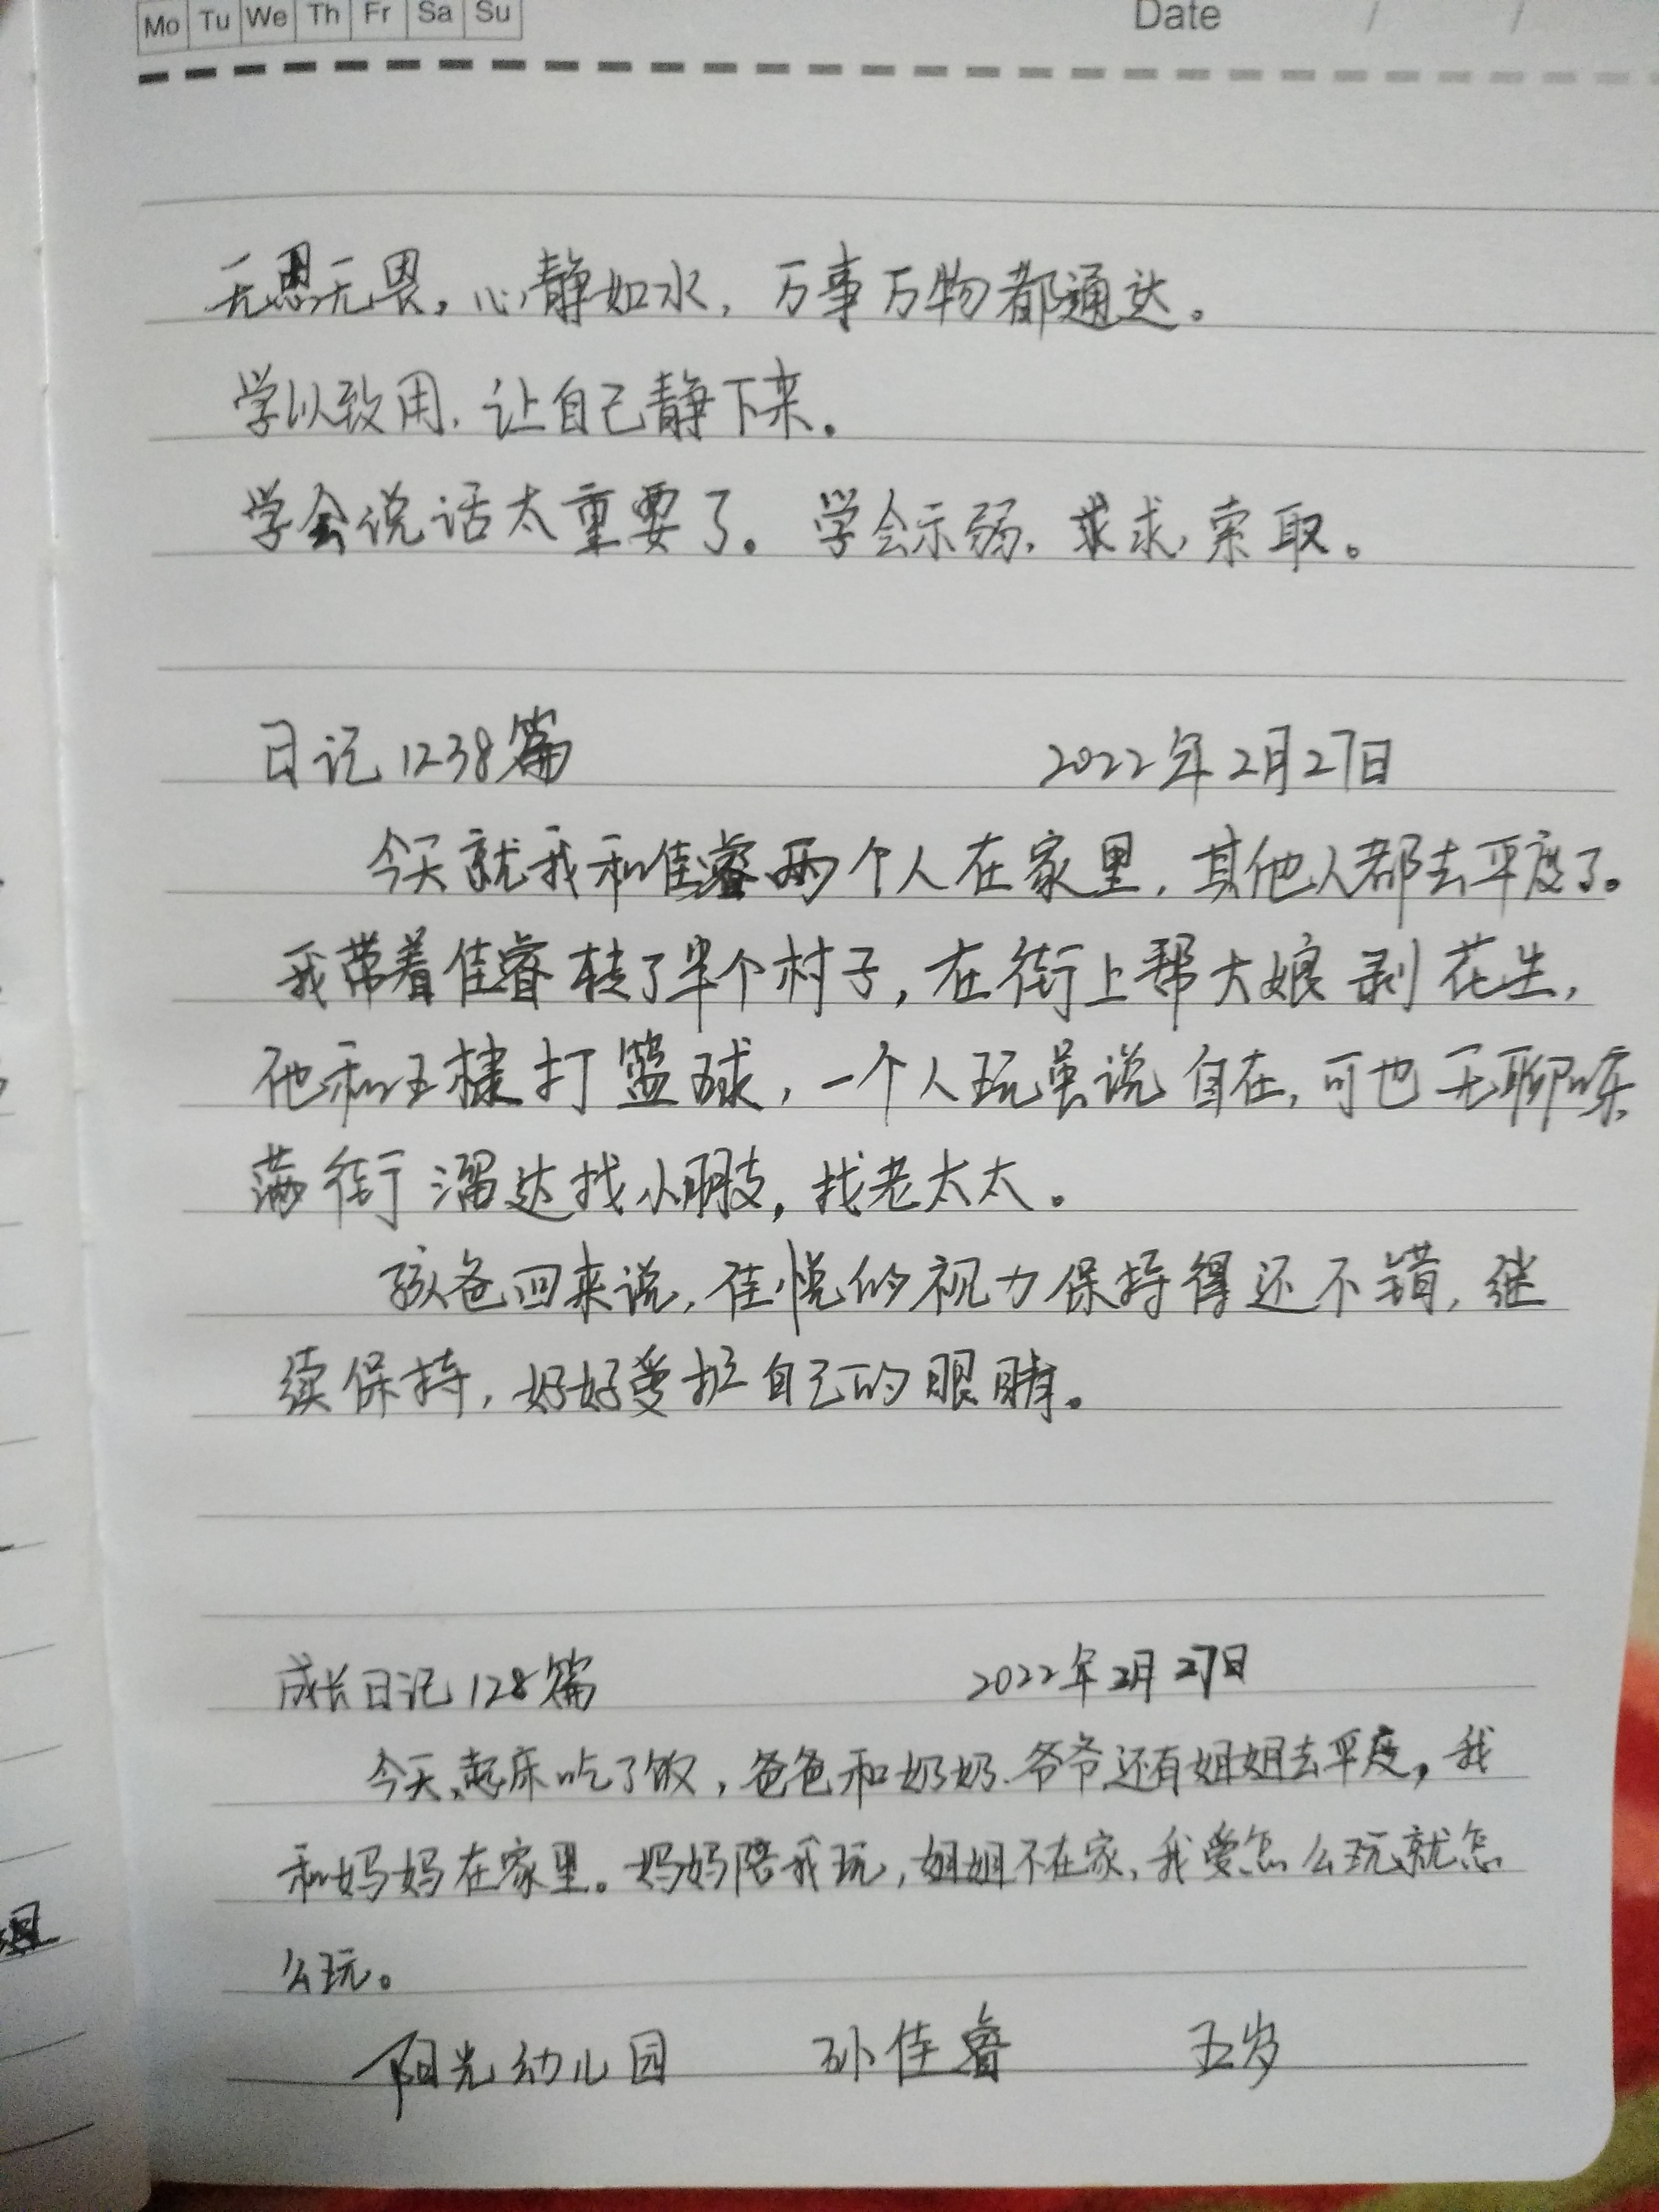 Mo Tu We Th Fr Sa Su Date / /
无思无畏，心静如水，万事万物都通达。
学以致用，让自己静下来。
学会说话太重要了。学会示弱，求，索取。
日记1238篇 2022年2月27日
今天就我和佳睿两个人在家里，其他人都去平度了。
我带着佳睿转了半个村子，在街上帮大娘剥花生，
他和王棣打篮球，一个人玩虽说自在，可也无聊，
满街溜达找小朋友，找老太太。
孩爸回来说，佳悦的视力保持得还不错，继
续保持，好好爱护自己的眼睛。
成长日记128篇 2022年2月27日
今天，起床吃了饭，爸爸和奶奶、爷爷还有姐姐去平度，我
和妈妈在家里。妈妈陪我玩，姐姐不在家，我爱怎么玩就怎
么玩。
阳光幼儿园 孙佳睿 五岁